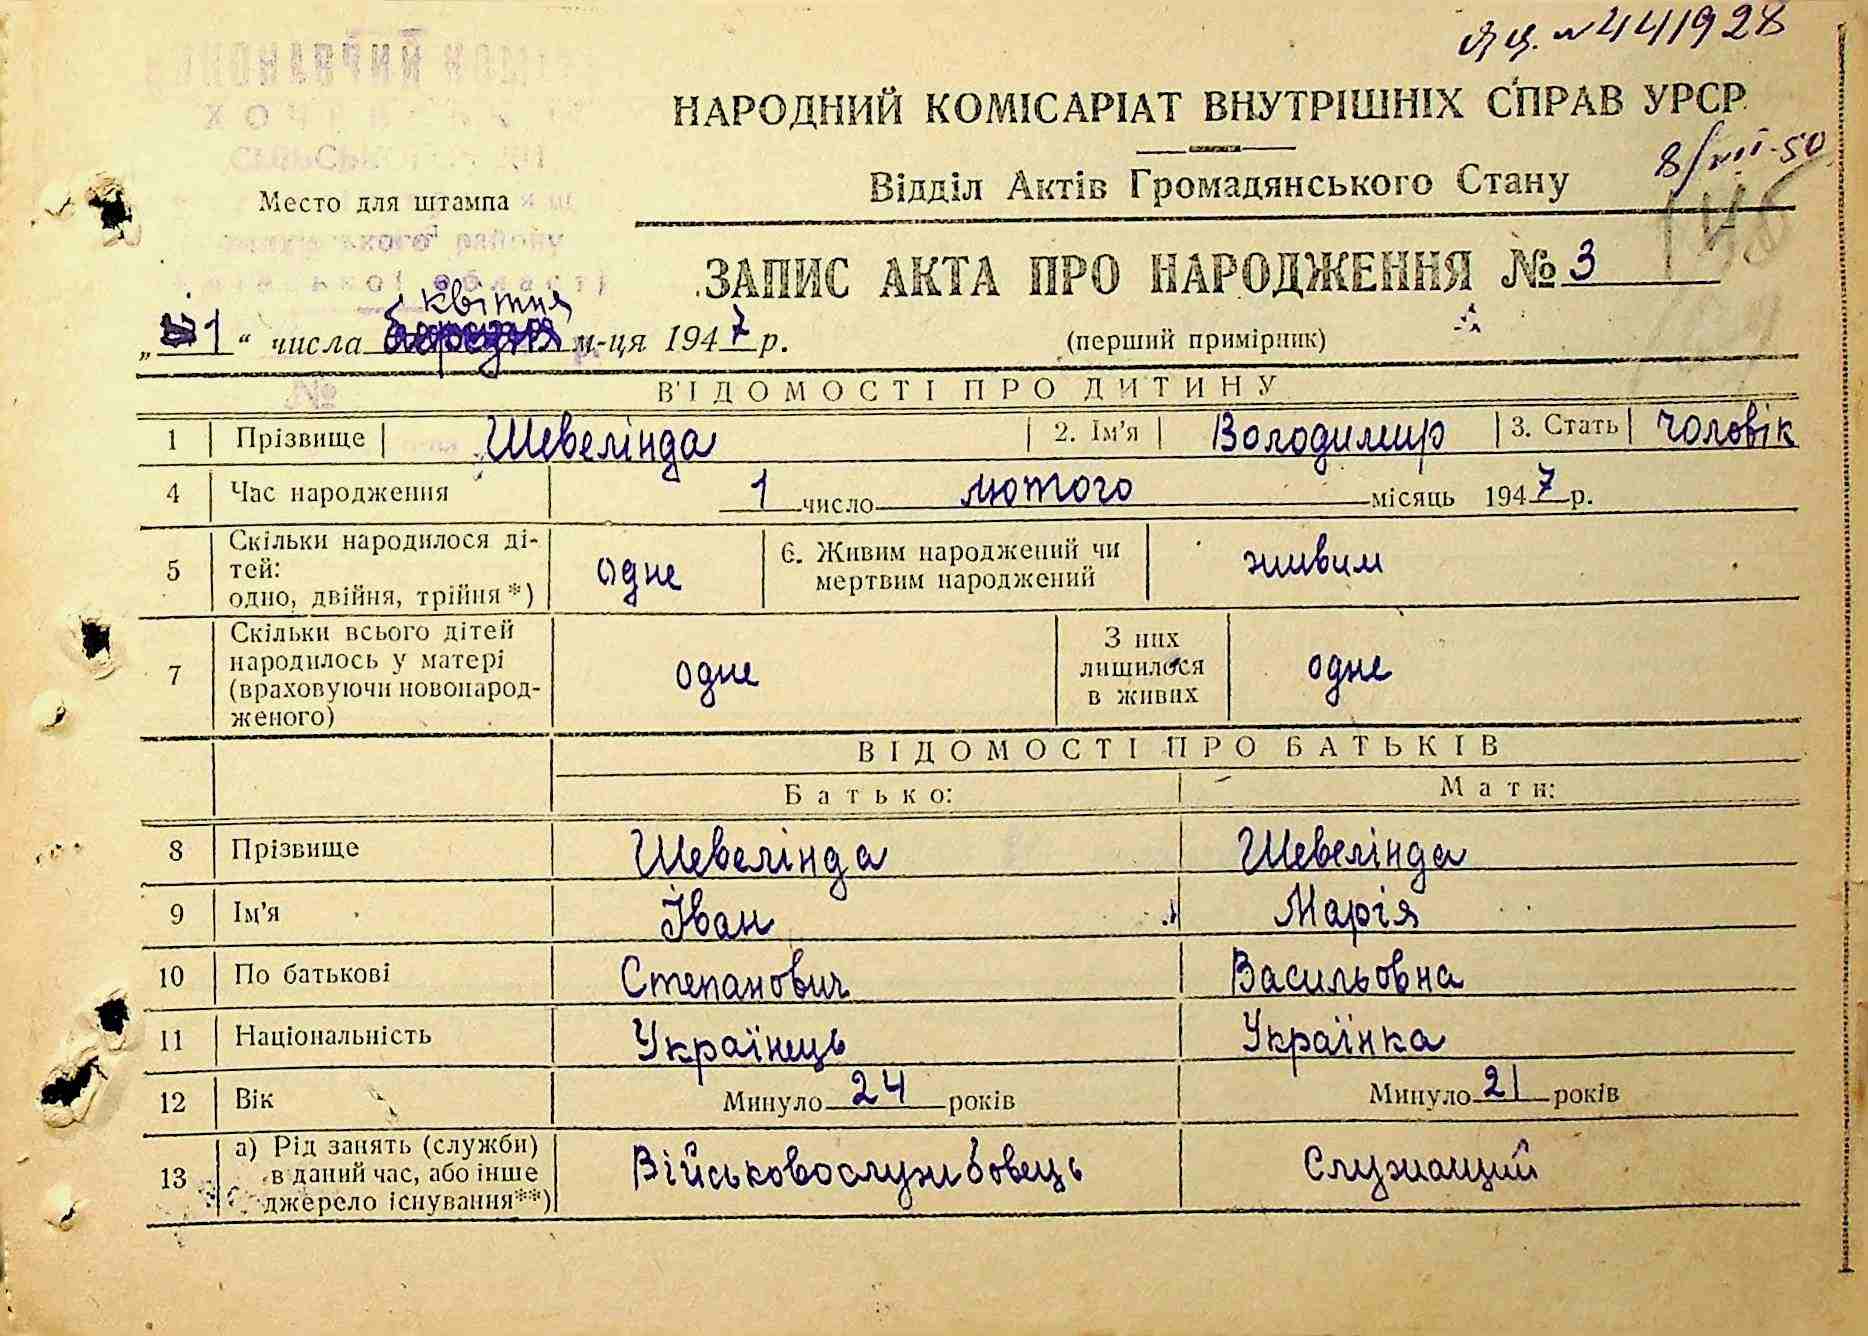 №441928
НАРОДНИЙ КОМІСАРІАТ ВНУТРІШНІХ СПРАВ УРСР
8/VII-50
Відділ Актів Громадянського Стану
Место для штампа
району
ЗАПИС АКТА ПРО НАРОДЖЕННЯ № 3
квітня
„1“ числа м-ця 1947 р. (перший примірник)
№
ВІДОМОСТІ ПРО ДИТИНУ
1 Прізвище Шевелінда 2. Ім'я Володимир 3. Стать чоловік
4 Час народження 1 число лютого місяць 1947 р.
5 Скільки народилося ді-
тей:
одно, двійня, трійня*) одне 6. Живим народжений чи
мертвим народжений живим
7 Скільки всього дітей
народилось у матері
(враховуючи новонарод-
женого) одне З них
лишилося
в живих одне
ВІДОМОСТІ ПРО БАТЬКІВ
Батько: Мати:
8 Прізвище Шевелінда Шевелінда
9 Ім'я Іван Марія
10 По батькові Степанович Васильовна
11 Національність Українець Українка
12 Вік Минуло 24 років Минуло 21 років
13 а) Рід занять (служби)
в даний час, або інше
джерело існування**) Військовослужбовець Служащий